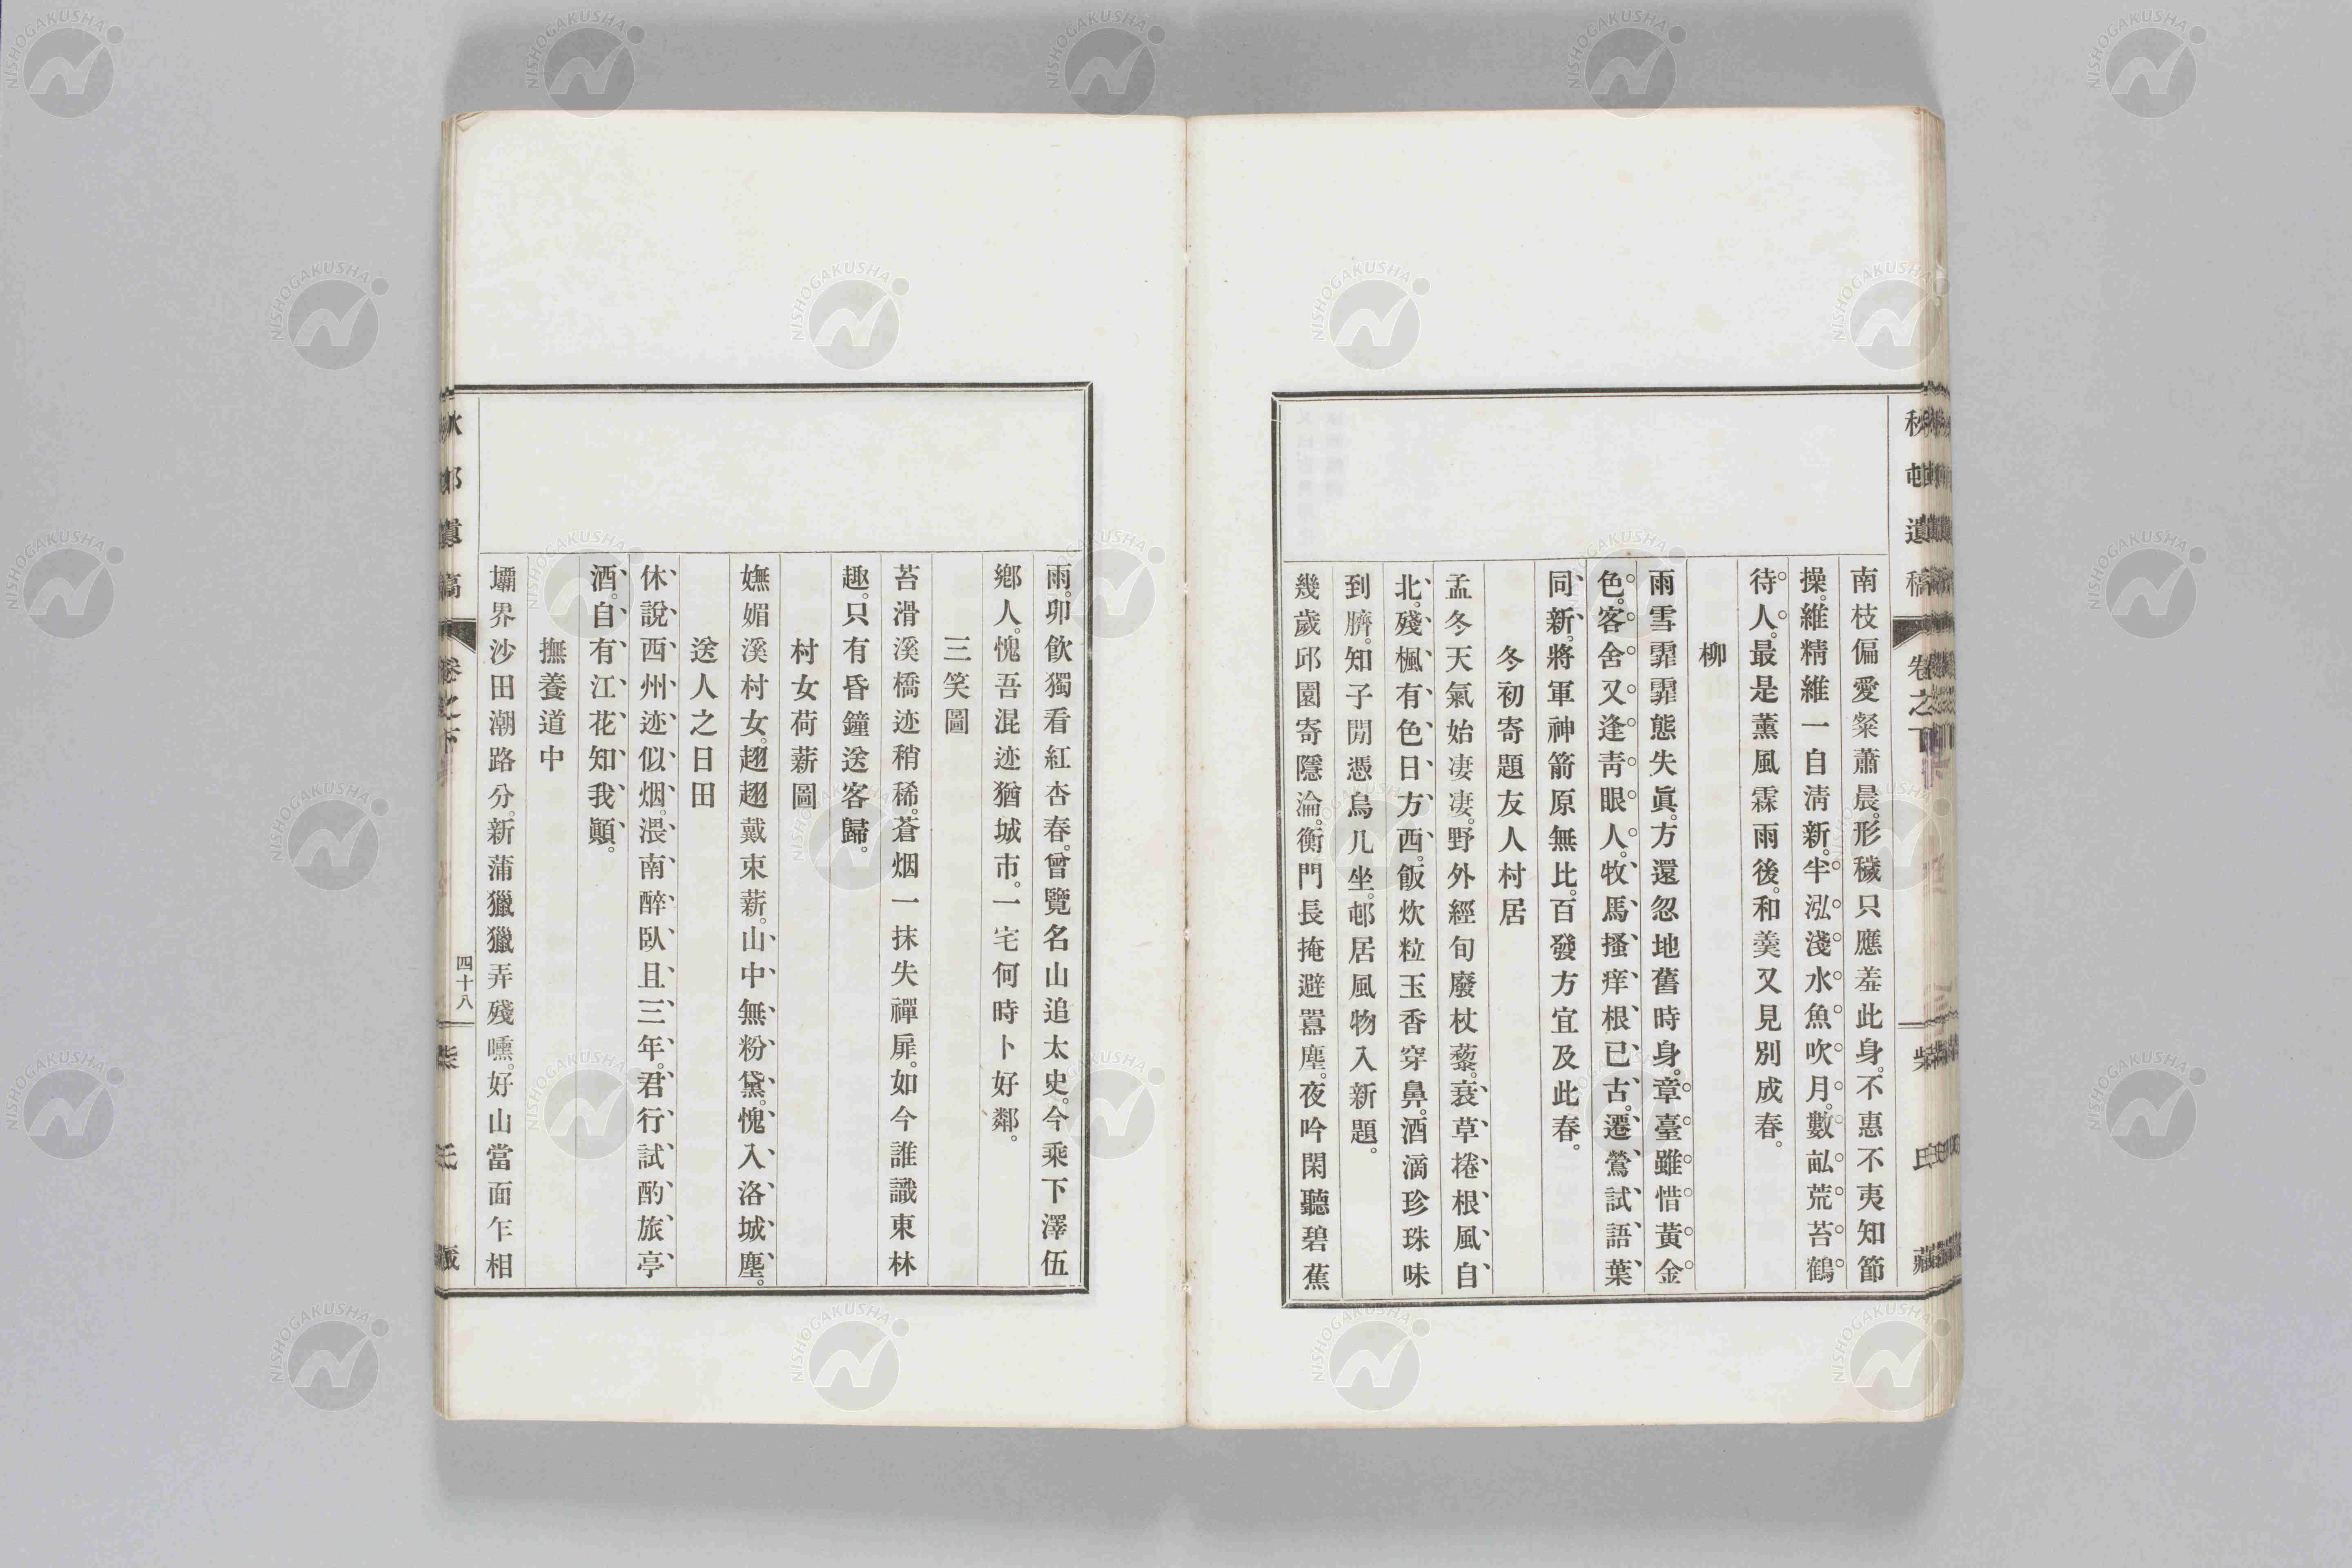 南枝偏愛粲蕭晨。形穢只應羞此身。不惠不夷知節
操。維精維一自淸新。半泓淺水魚吹月。數畝荒苔鶴
待人。最是薰風霖雨後。和羹又見別成春。
柳
雨雪霏霏態失眞。方還忽地舊時身。章臺雖惜黃金
色。客舍又逢靑眼人。牧馬搔痒根已古。遷鶯試語葉
同新。將軍神箭原無比。百發方宜及此春。
冬初寄題友人村居
孟冬天氣始凄凄。野外經旬廢杖藜。衰草捲根風自
北。殘楓有色日方西。飯炊粒玉香穿鼻。酒滴珍珠味
到臍。知子閒憑烏几坐。邨居風物入新題。
幾歲邱園寄隱淪。衡門長掩避囂塵。夜吟閑聽碧蕉
雨。卯飮獨看紅杏春。曾覽名山追太史。今乘下澤伍
鄕人。愧吾混迹猶城市。一宅何時卜好鄰。
三笑圖
苔滑溪橋迹稍稀。蒼烟一抹失禪扉。如今誰識東林
趣。只有昏鐘送客歸。
村女荷薪圖
嫵媚溪村女。趐趐戴束薪。山中無粉黛。愧入洛城塵。
送人之日田
休說西州迹似烟。濃南醉臥且三年。君行試酌旅亭
酒。自有江花知我顚。
撫養道中
壩界沙田潮路分。新蒲獵獵弄殘曛。好山當面乍相
四十八